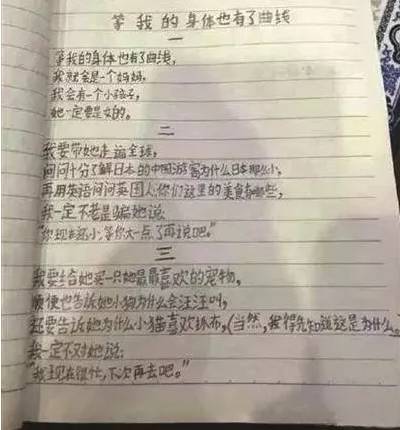 等我的身体也有了曲线
一
等我的身体也有了曲线,
我就会是一个妈妈,
我会有一个小孩子,
她一定要是女的。
二
我要带她走遍全球,
问问十分了解日本的中国游客为什么日本那么小,
再用英语问问英国人:你们这里的美食有哪些,
我一定不老是骗她说:
“你现在还小,等你大一点了再说吧。”
三
我要给她买一只她最最喜欢的宠物,
顺便也告诉她小狗为什么会汪汪叫,
还要告诉她为什么小猫喜欢抓布,(当然,我得先知道这是为什么
我一定不对她说:
“我现在很忙,下次再去吧。”